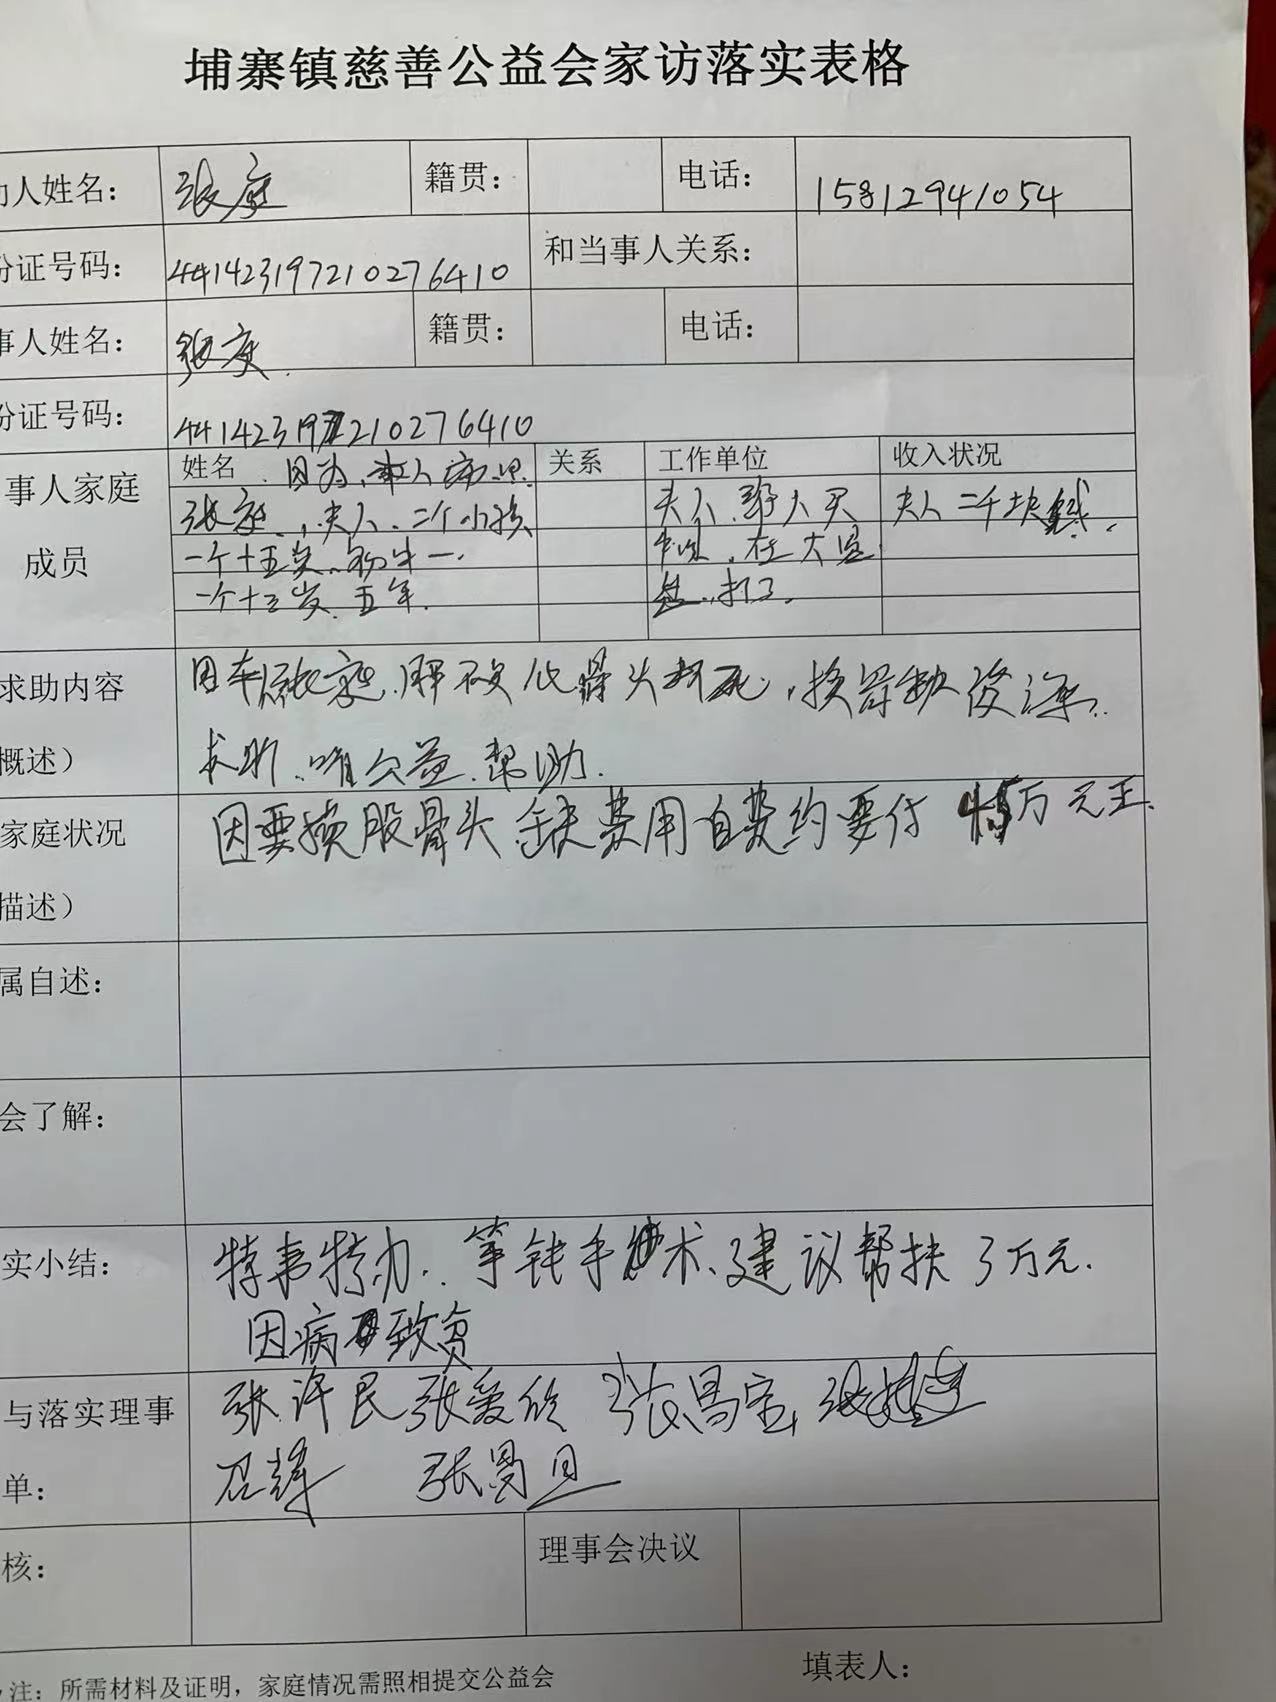 埔寨镇慈善公益会家访落实表格
人姓名： 张庭 籍贯： 电话： 15812941054
份证号码： 441423197210276410 和当事人关系：
事人姓名： 张庭 籍贯： 电话：
份证号码： 441423197210276410
事人家庭成员
姓名 因为 本人 关系 工作单位 收入状况
张庭 夫人 二个小孩 夫人 夫人二千块钱
一个十五岁 初中一 在大
一个十三岁 五年 打工
求助内容
概述） 求助 公益 帮助
家庭状况 因要换股骨头 缺费用自费约要付 万元正
描述）
属自述：
会了解：
实小结： 特事特办 等钱手术 建议帮扶3万元
因病致贫
与落实理事 张许民 张爱欣 张昌宝
单： 召辉 张昌旦
核： 理事会决议
注：所需材料及证明，家庭情况需照相提交公益会 填表人：